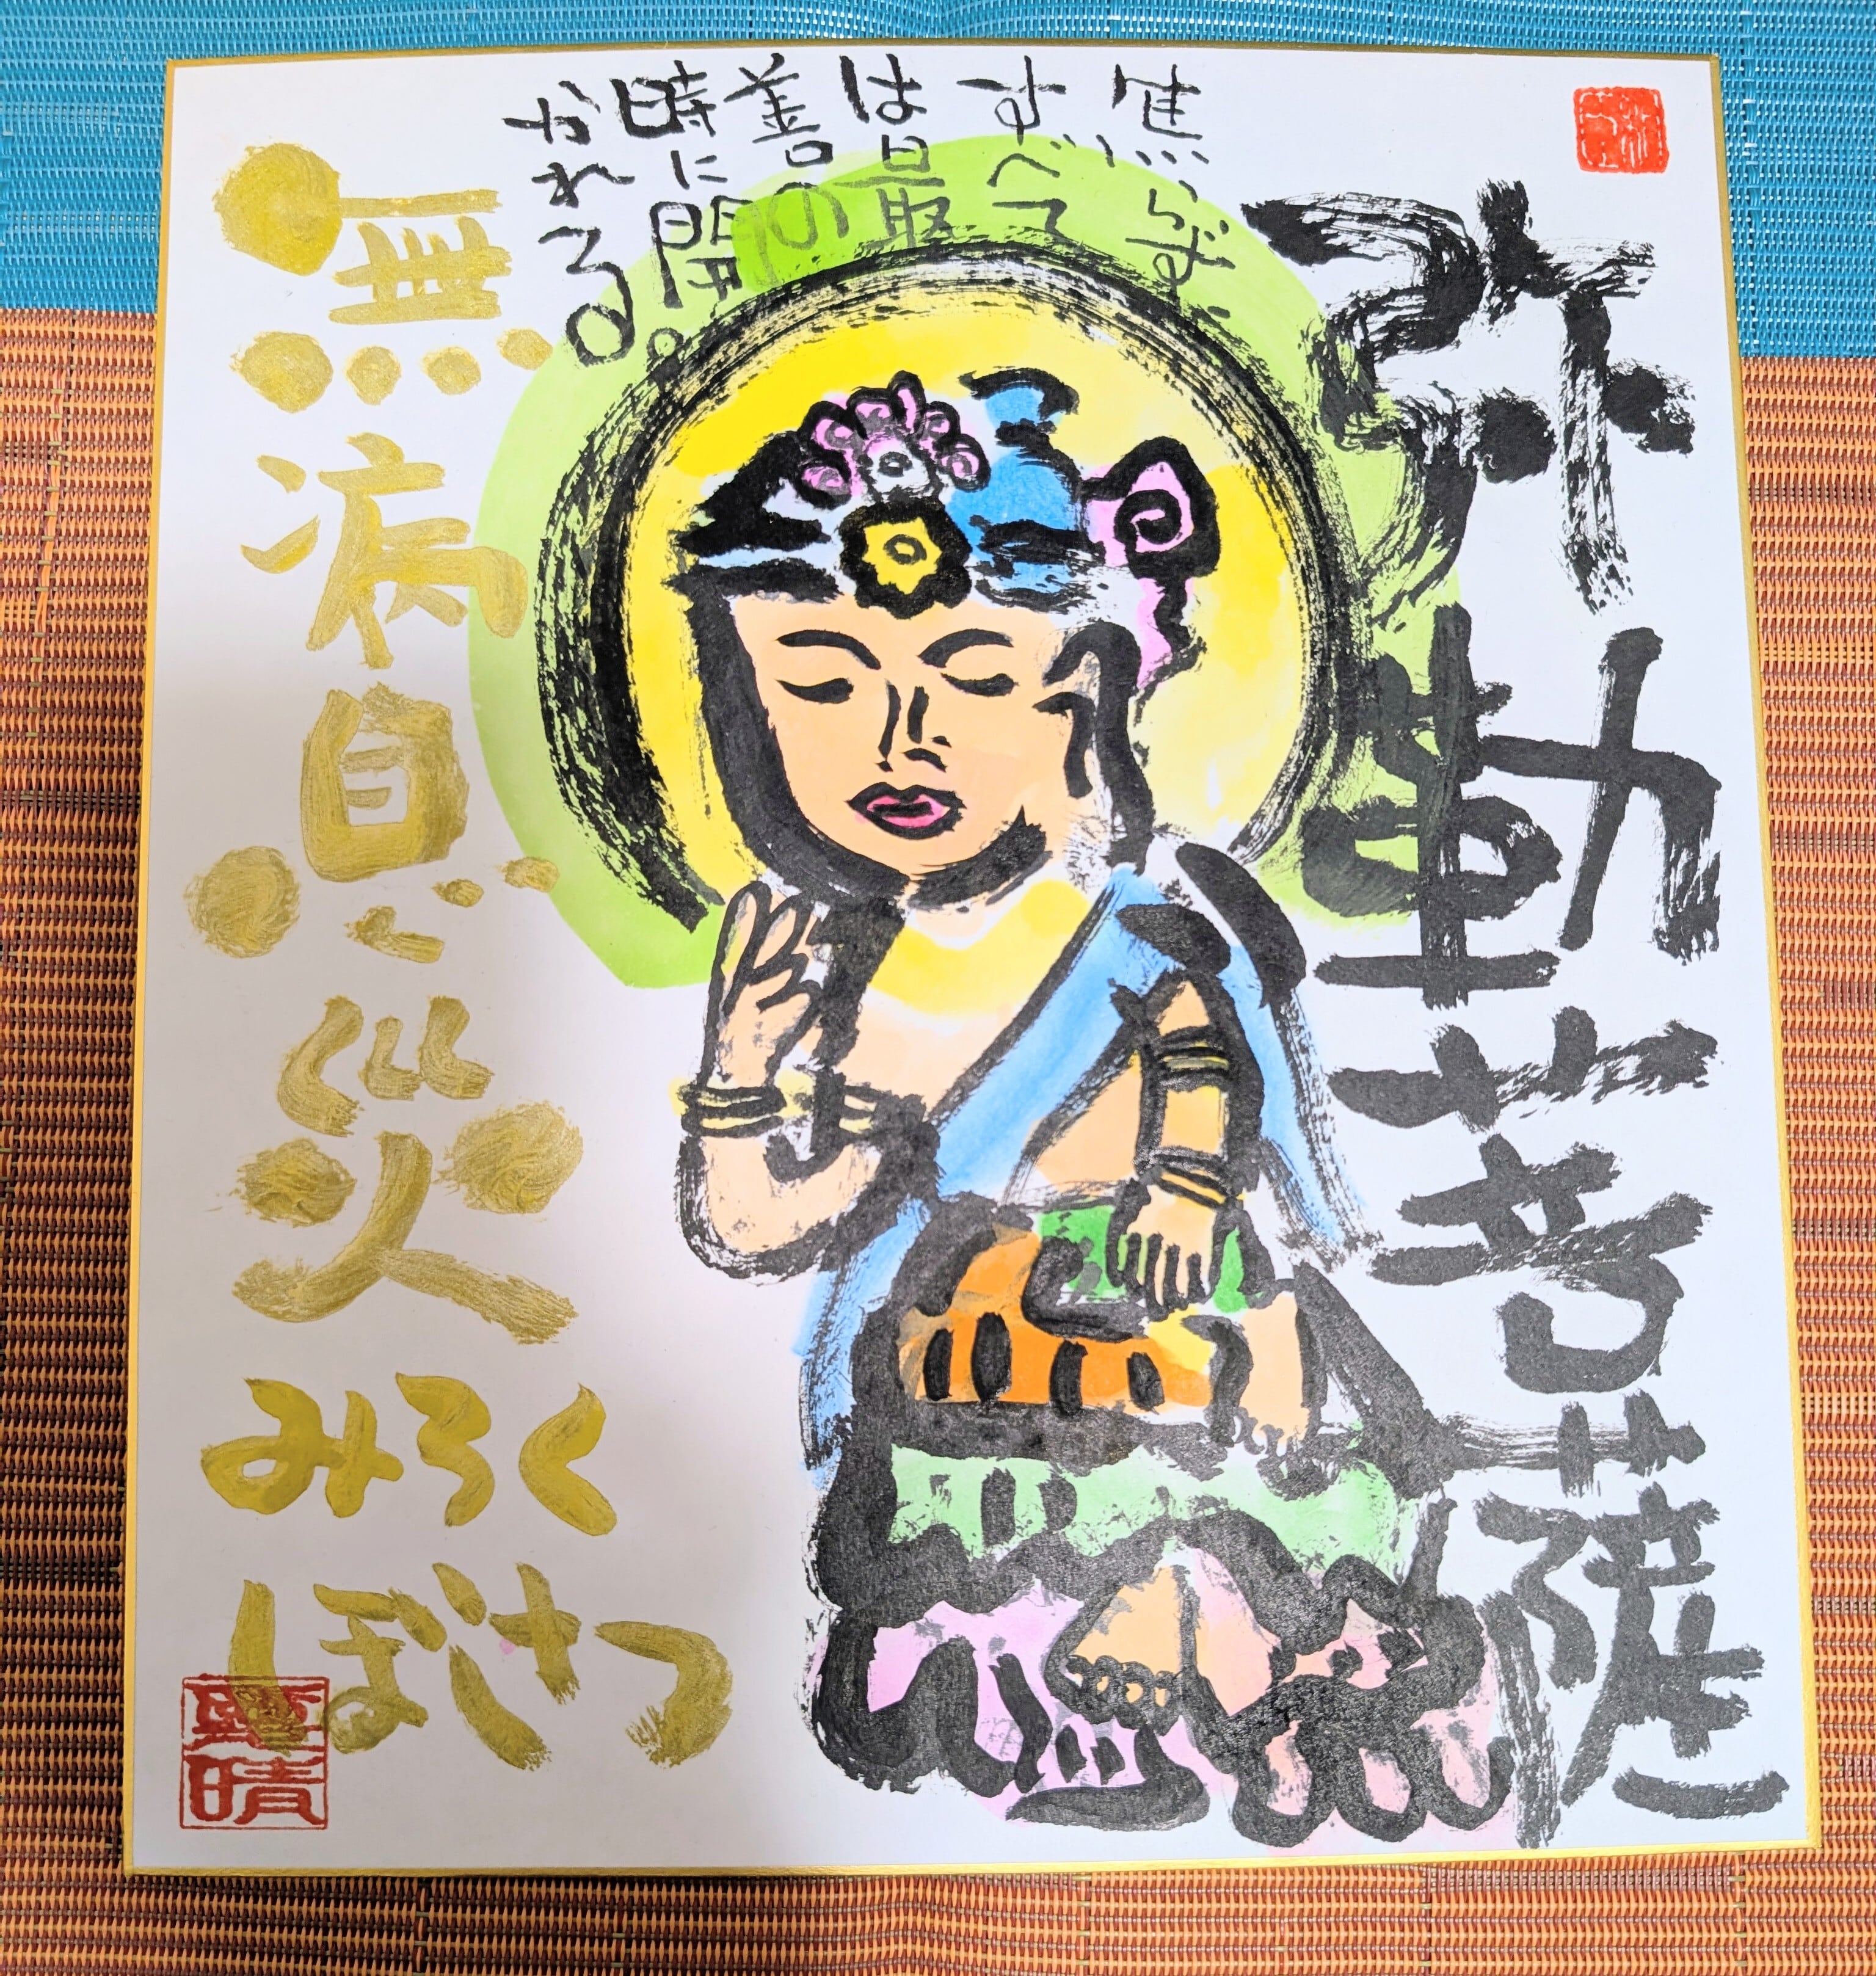 弥勒菩薩
焦らず
すべて
は最
善の
時に開
かれる。
無病息災
みろく
ぼさつ